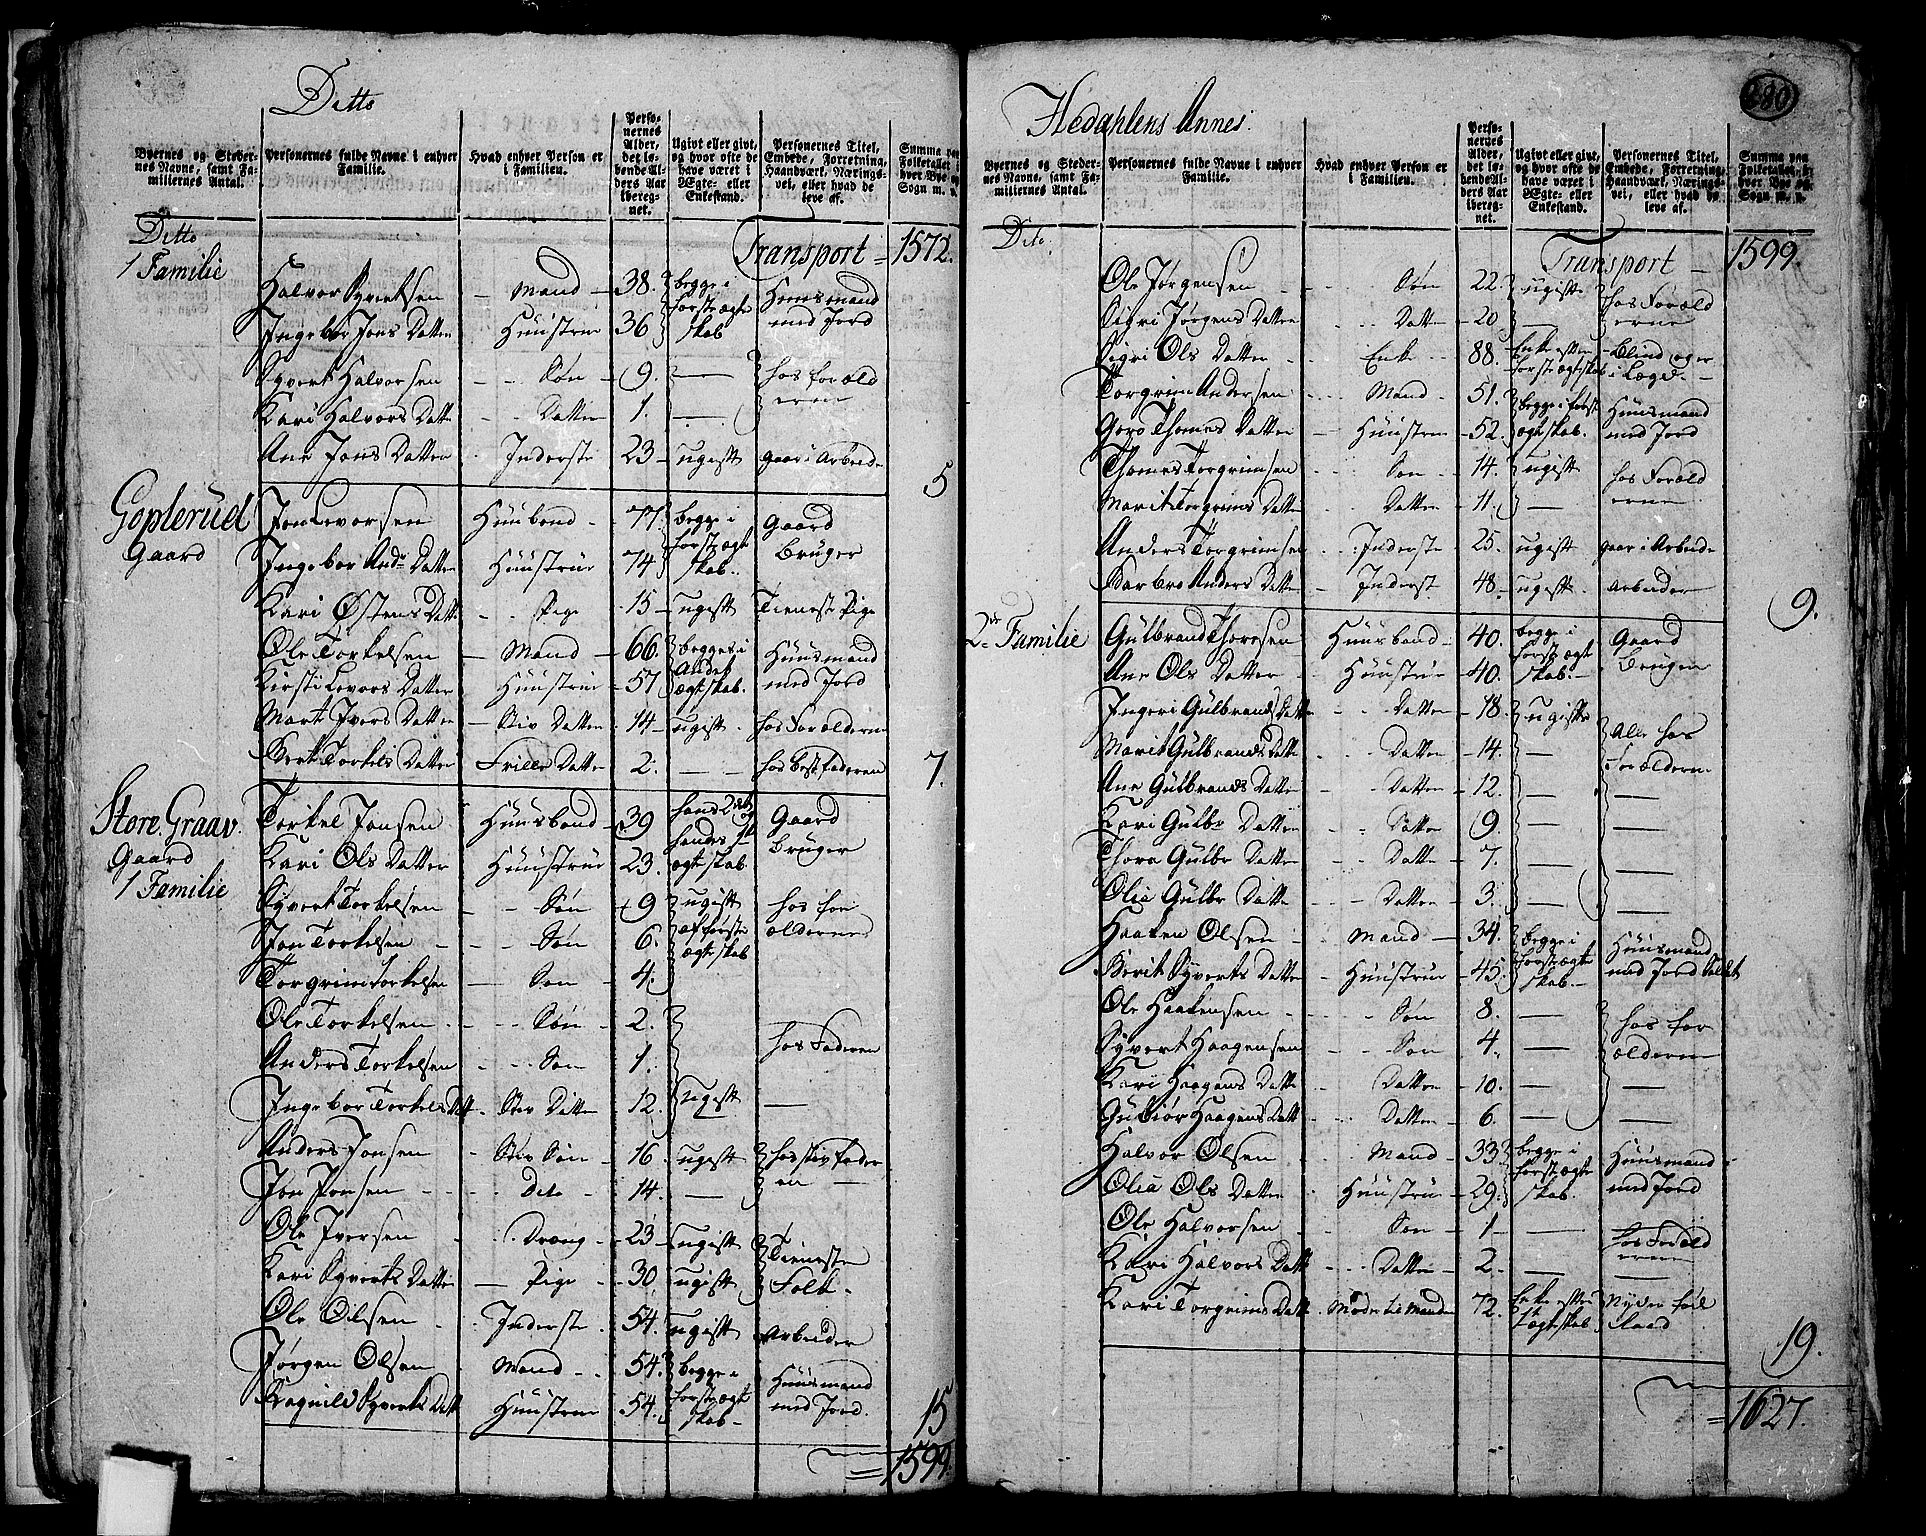 Ditto
Byernes og Stedernes Navne, samt Familiernes Antal.
Personernes fulde Navne i enhver Familie.
Hvad enhver Person er i Familien.
Personernes Alder, det løbende Alders Aar iberegnet.
Ugivt eller givt, og hvor ofte de have været i Ægte- eller Enkestand.
Personernes Titel, Embede, Forretning, Haandværk, Næringsvei, eller hvad de leve af.
Summa paa Folketallet
Sogn m. v.
Ditto Transport = 1572.
1 Familie
Halvor Syvertsen - Mand - 38. begge i Huusmand
Ingebor Jons Datter Huustrue 36 første ægteskab med Jord
Syvert Halvorsen - - Søn - 9. — hos foræld
Kari Halvors Datter - - Datter 1. — erne
Ane Jons Datter - Inderste 23 - ugift gaar i Arbeide
5
Goplerud Jon Levorsen Huusbond - 77. begge i Gaard
Gaard Ingebor And: Datter Huustrue 74 første ægteskab Bruger
Kari Østens Datter - - Pige - 15 - ugift Tieneste Pige
Ole Torkelsen - Mand - 66. begge i Huusmand
Kirsti Levors Datter Huustrue - 57 Andet ægteskab. med Jord
Marit Ivers Datter - Stiv Datter - 14 - ugift - hos Forældrene
Berit Torkels Datter Frille Datter 2. — — hos bestefaderen
7.
Store Graav. Torkel Jonsen Huusbond - 39 hans 2det Gaard
Gaard Kari Ols Datter Huustrue 23. hendes 1ste ægteskab Bruger
1 Familie Syvert Torkelsen - - Søn - 9 ugift hos for
Jon Torkelsen - - - Søn - 6. af første ældrene
Torgrim Torkelsen — Søn - 4. ægteskab
Ole Torkelsen - - - Søn - 2.
Anders Torkelsen - - - Søn - 1. hos Faderen
Ingebor Torkels Datt - Stiv Datter - 12. ugift —
Anders Jonsen - Stiv Søn - 16 - ugift hos Stivfader
Jon Jonsen - - - Dito - 14. — en —
Ole Iversen - - Dreng - 23 - ugift Tieneste
Kari Syverts Datter — Pige - 30 - ugift Folk -
Ole Olsen - Inderste - 54. ugift Arbeider
Jørgen Olsen - Mand - - 54. begge i Huusmand
Ragnild Syverts Datt Huustrue - 54. første ægteskab - med Jord.
15
= 1599.
280
Hedahlens Annex.
Byernes og Stedernes Navne, samt Familiernes Antal.
Personernes fulde Navne i enhver Familie.
Hvad enhver Person er i Familien.
Personernes Alder, det løbende Alders Aar iberegnet.
Ugivt eller givt, og hvor ofte de have været i Ægte- eller Enkestand.
Personernes Titel, Embede, Forretning, Haandværk, Næringsvei, eller hvad de leve af.
Summa paa Folketallet
Sogn m. v.
Dito Transport - 1599.
Ole Jørgensen - - - - Søn - 22. ugifte hos Foræld
Sigri Jørgens Datter - - Datter - 20 — erne
Sigri Ols Datter - - Enke - - 88. Enke efter første ægteskab - Blind og er i Lægd. -
Torgrim Andersen - - - Mand - 51. begge i først Huusmand
Goro Thomes Datter — Huustrue - 52. ægteskab. med Jord
Thomes Torgrimsen - - Søn - 14. ugift hos Foræld
Marit Torgrims Datter - - Datter - 11. — erne
Anders Torgrimsen - - Inderste - 25. ugift gaar i Arbeide
Barbro Anders Datter - Inderst - 48 - ugift - Arbeider
9.
2de Familie Gulbrand Thoresen Huusbond - 40. begge i Gaard
Ane Ols Datter - - Huustrue - 40. første ægteskab. - Bruger
Ingeri Gulbrands Datter - - Datter - 18. ugifte
Marit Gulbrands Datter - - Datter - 14. — Alle hos
Ane Gulbrands Datter - - Datter - 12. — Forældrene
Kari Gulbr Datter - - Datter - 9. — —
Thora Gulbr Datter - - Datter - 7. — —
Olia Gulbr Datter - - - Datter - 3. — —
Haaken Olsen - - Mand - 34. begge i Huusmand
Berit Syverts Datter - Huustrue - 45. første ægteskab - med Jord Soldat
Ole Haakensen - - - - Søn - 8. — hos for
Syvert Haagensen - - Søn - 4. — ældrene
Kari Haagens Datter - Datter - 10. — —
Gubiør Haagens Datt - Datter - 6. — —
Halvor Olsen - - Mand - 33. begge i Huusmand
Olia Ols Datter - - Huustrue - 29. første ægteskab. med Jord
Ole Halvorsen - - - Søn - 1 — hos Foræld
Kari Halvors Datt - - - Datter - 2. — erne
Kari Torgrims Datt - Moder til Manden 72. Enke efter 1st ægteskab Nyder føderaad
19.
= 1627.